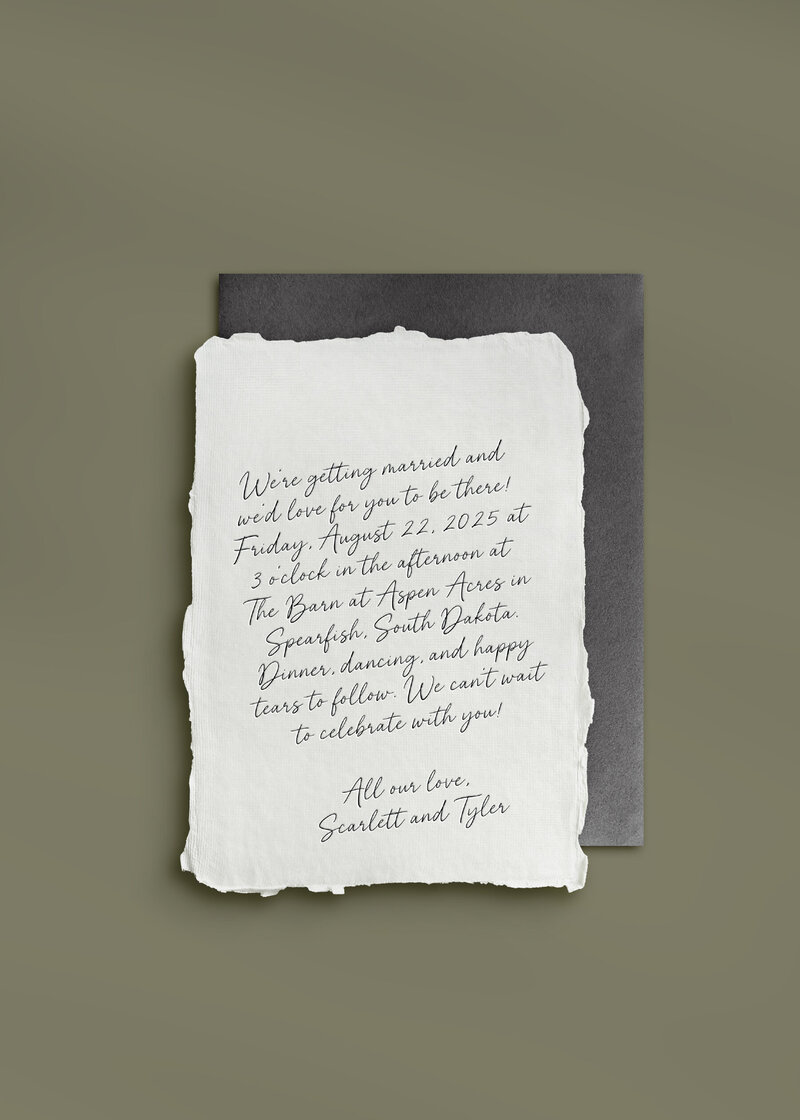 We're getting married and
we'd love for you to be there!
Friday, August 22, 2025 at
3 o'clock in the afternoon at
The Barn at Aspen Acres in
Spearfish, South Dakota.
Dinner, dancing, and happy
tears to follow. We can't wait
to celebrate with you!
All our love,
Scarlett and Tyler